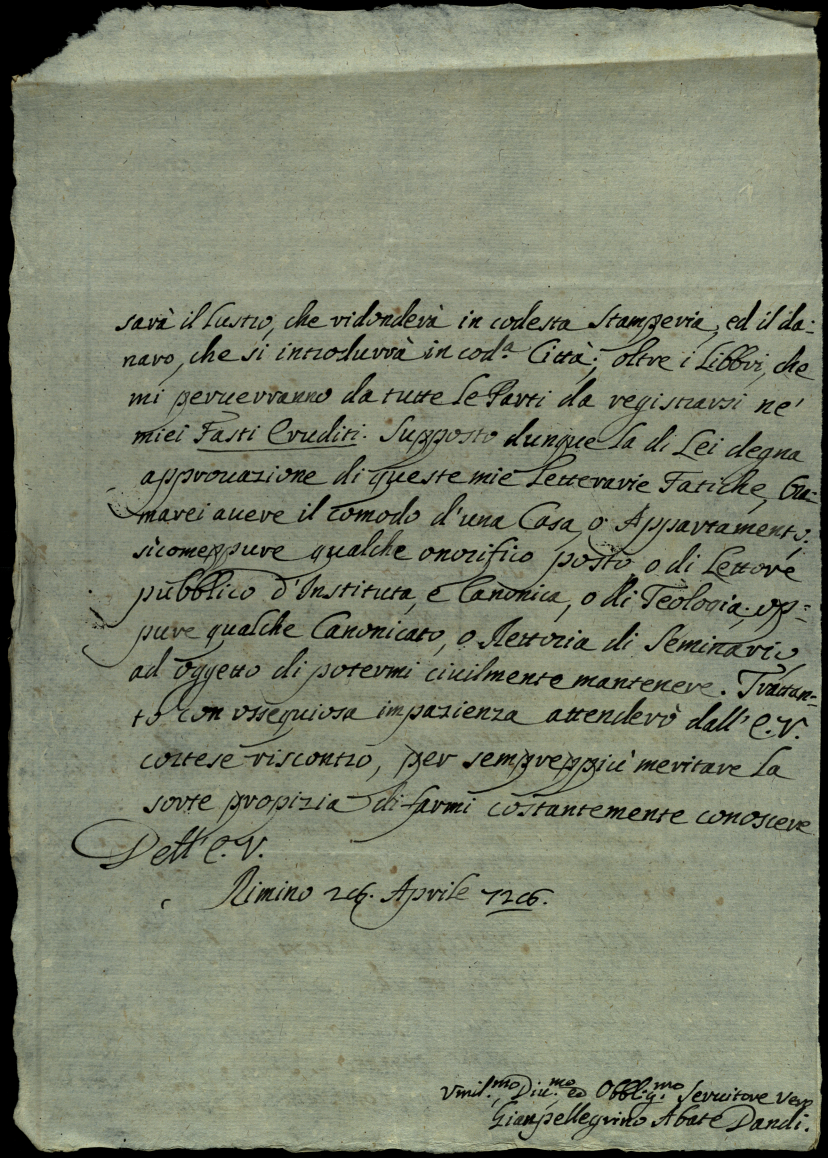 sarà il Lustro, che ridonderà in codesta Stamperia, ed il da:
naro, che si introdurrà in cod.ᵃ Città; oltre i Libbri, che
mi perverranno da tutte le Parti da registrarsi ne'
miei Fasti Eruditi. Supposto dunque la di Lei degna
approvazione di queste mie Letterarie Fatiche, bra=
marei avere il comodo d'una Casa, o Appartamento,
sicomeppure qualche onorifico posto, o di Lettore
pubblico d'Instituta, e Canonica, o di Teologia; op=
pure qualche Canonicato, o Rettoria di Seminario,
ad oggetto di potermi civilmente mantenere. Trattan=
to con ossequiosa impazienza attenderò dall' E.V.
cortese riscontro, per semppreppiù meritare la
sorte propizia di farmi costantemente conoscere
Dell' E.V.
Rimino 26. Aprile 726.
Vmil.ᵐᵒ, Div.ᵐᵒ ed Obblig.ᵐᵒ Servitore Vero
Gianpellegrino Abate Dandi.